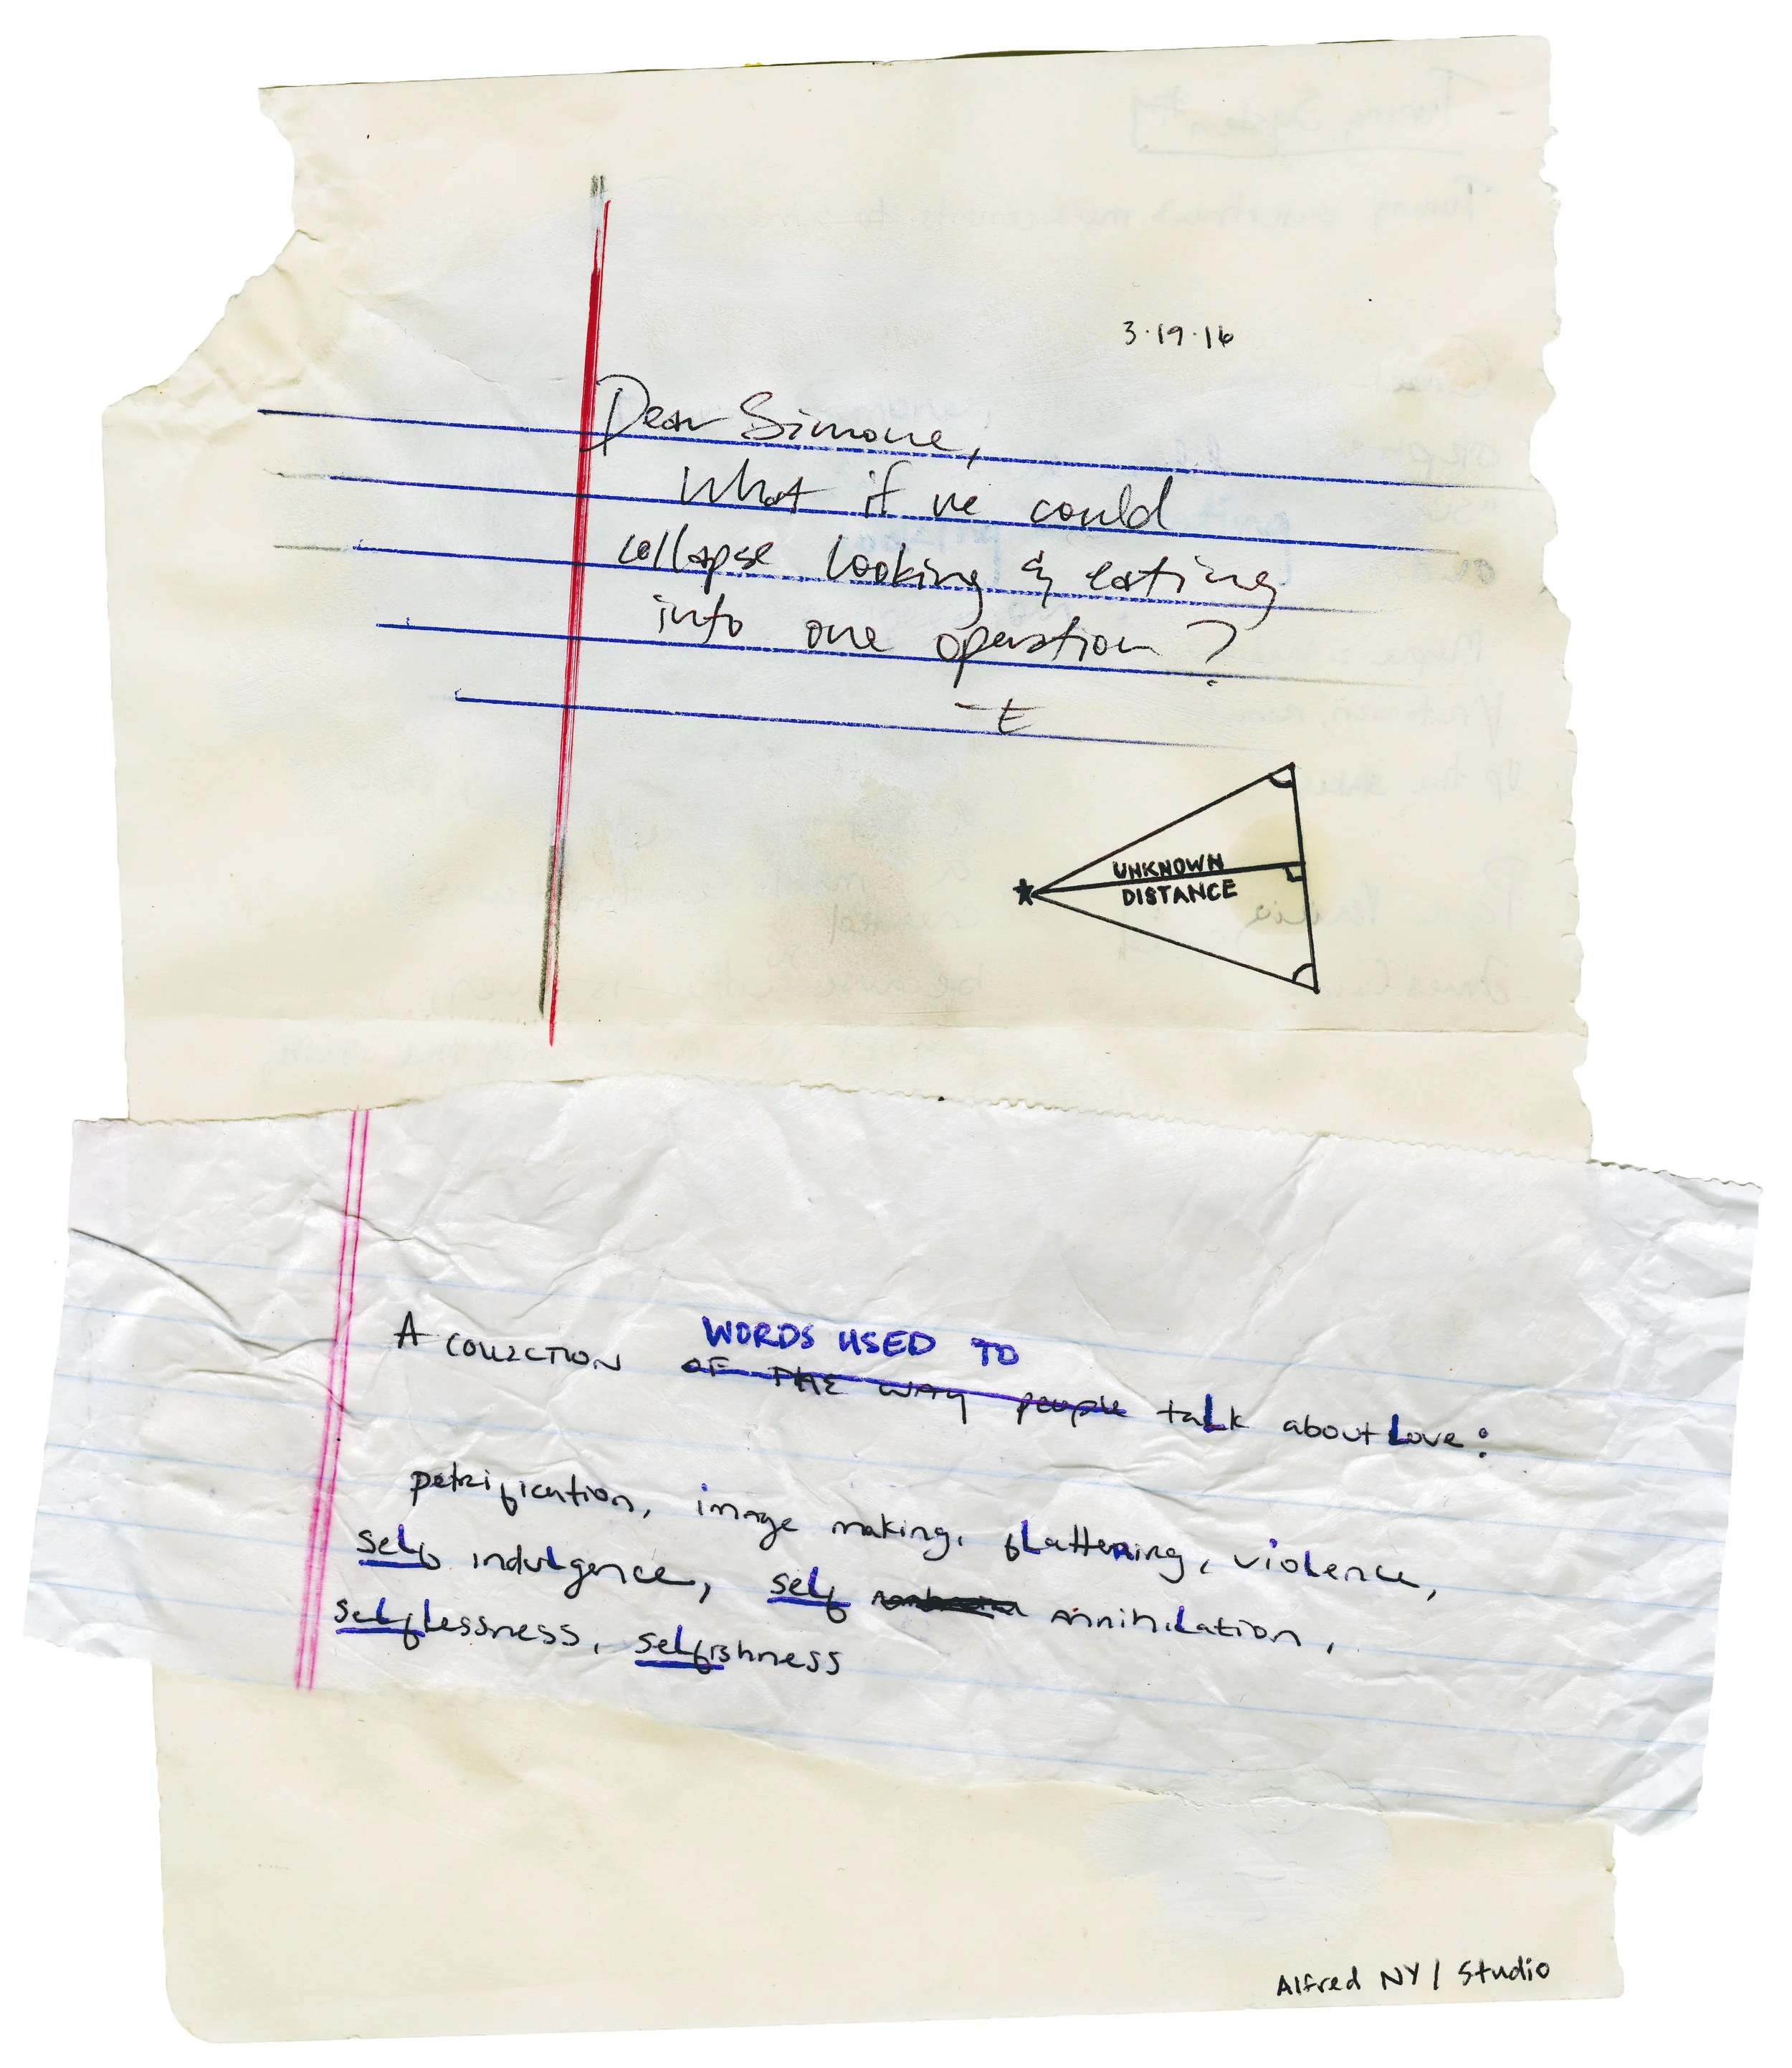 3·19·16
Dear Simone,
what if we could
collapse looking & eating
into one operation?
-E
UNKNOWN
DISTANCE
WORDS USED TO
A COLLECTION OF THE WAY people talk about Love:
petrification, image making, flattening, violence,
self indulgence, self annihilation,
selflessness, selfishness
Alfred NY / Studio